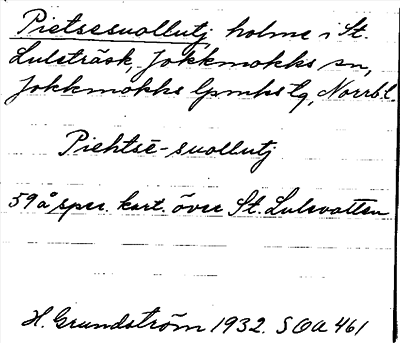 Pietsesuollutj holme i St.
Lulsträsk, Jokkmokks sn,
Jokkmokks lpmks tg, Norrb. l.
Piehtsē-suollutj
59 å spec. kart. över St. Lulevatten
H. Grundström 1932. SOA 461